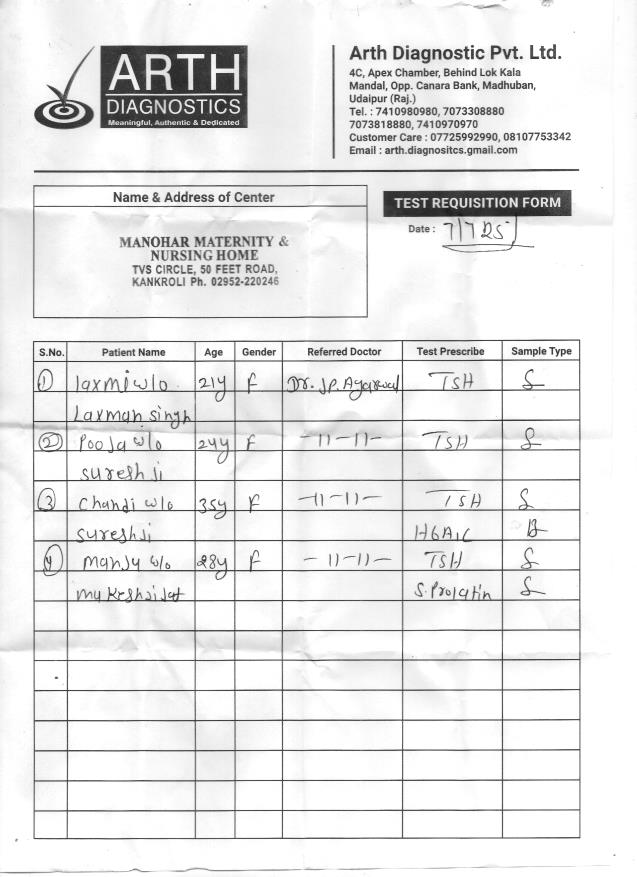 ARTH
DIAGNOSTICS
Meaningful, Authentic & Dedicated
Arth Diagnostic Pvt. Ltd.
4C, Apex Chamber, Behind Lok Kala
Mandal, Opp. Canara Bank, Madhuban,
Udaipur (Raj.)
Tel. : 7410980980, 7073308880
7073818880, 7410970970
Customer Care : 07725992990, 08107753342
Email : arth.diagnositcs.gmail.com
Name & Address of Center
MANOHAR MATERNITY &
NURSING HOME
TVS CIRCLE, 50 FEET ROAD,
KANKROLI Ph. 02952-220246
TEST REQUISITION FORM
Date : 7/7/25
S.No. Patient Name Age Gender Referred Doctor Test Prescribe Sample Type
1 laxmi w/o 21y F Dr. J.P. Agarwal TSH S
Laxman singh
2 Pooja w/o 24y F -11-11- TSH S
suresh ji
3 Chandi w/o 35y F -11-11- TSH S
suresh ji HbA1C B
4 manju w/o 28y F -11-11- TSH S
mukesh ji Jat S. Prolatin S